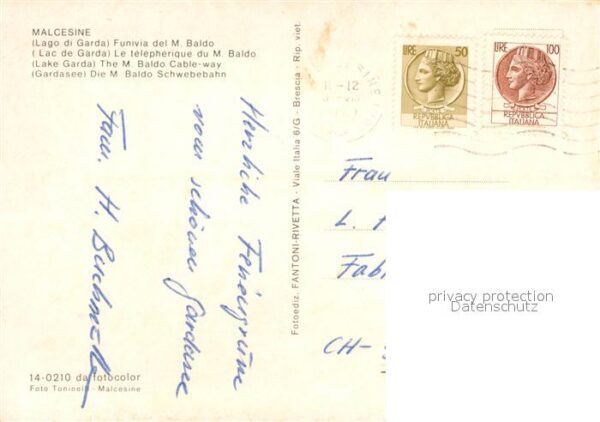 MALCESINE
(Lago di Garda) Funivia del M. Baldo
( Lac de Garda) Le télepherique du M. Baldo
(Lake Garda) The M. Baldo Cable-way
(Gardasee) Die M. Baldo Schwebebahn
Herzliche Feriengrüsse
vom schönen Gardasee
Fam. H.
14-0210 da fotocolor
Foto Toninelli - Malcesine
Fotoediz. FANTONI-RIVETTA - Viale Italia 6/G - Brescia - Rip. viet.
LIRE 50
REPVBBLICA
ITALIANA
LIRE 100
REPVBBLICA
ITALIANA
Frau
L.
Fab
CH-
privacy protection
Datenschutz